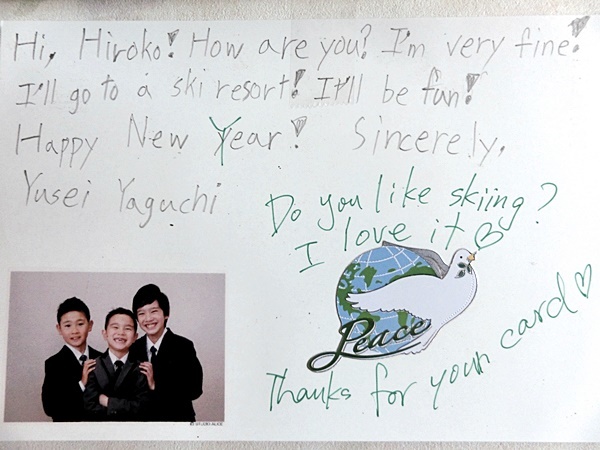 Hi, Hiroko! How are you? I'm very fine!
I'll go to a ski resort! It'll be fun!
Happy New Year! Sincerely,
Yusei Yaguchi
Do you like skiing?
I love it♡
Peace
Thanks for your card♡